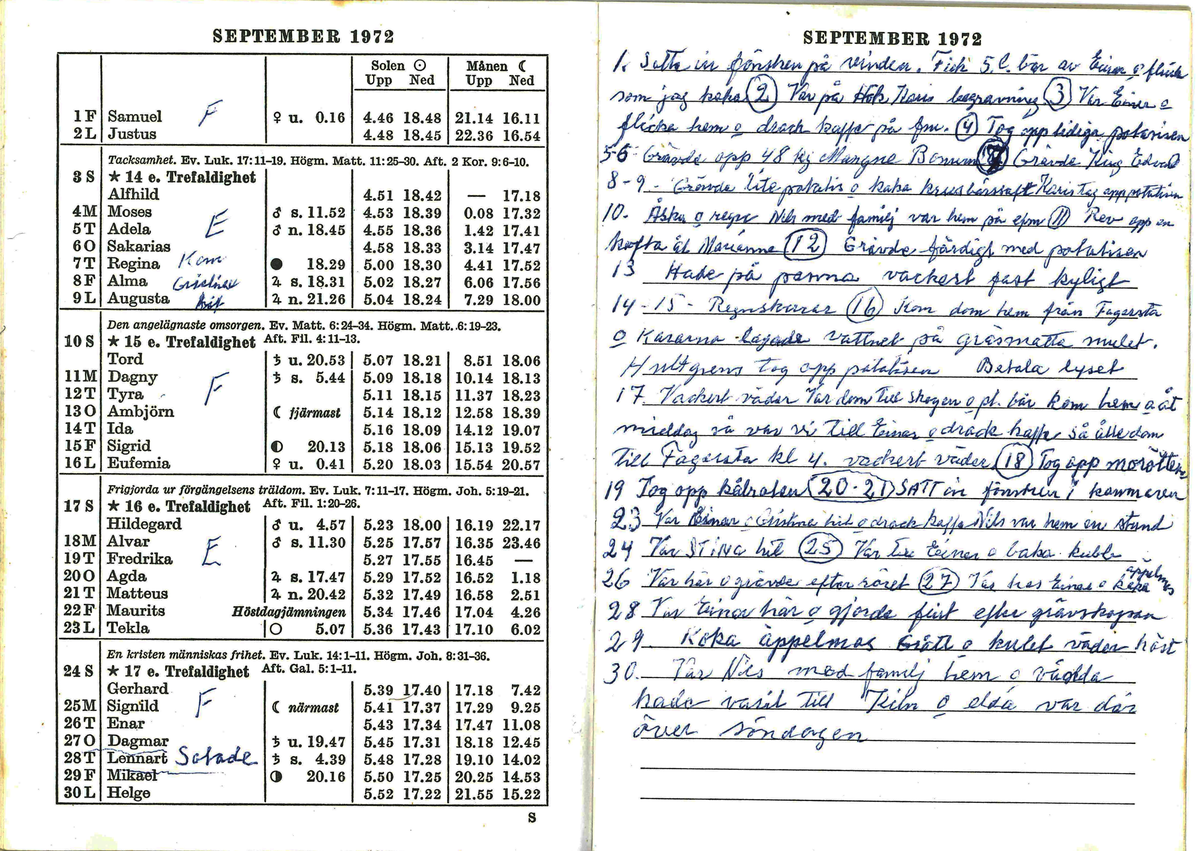 SEPTEMBER 1972
Solen ☉ Månen ☾
Upp Ned Upp Ned
1 F Samuel F ♀ u. 0.16 4.46 18.48 21.14 16.11
2 L Justus 4.48 18.45 22.36 16.54
Tacksamhet. Ev. Luk. 17:11-19. Högm. Matt. 11:25-30. Aft. 2 Kor. 9:6-10.
3 S ★ 14 e. Trefaldighet
Alfhild 4.51 18.42 — 17.18
4 M Moses ♂ s. 11.52 4.53 18.39 0.08 17.32
5 T Adela E ♂ n. 18.45 4.55 18.36 1.42 17.41
6 O Sakarias 4.58 18.33 3.14 17.47
7 T Regina Kom ● 18.29 5.00 18.30 4.41 17.52
8 F Alma ♃ s. 18.31 5.02 18.27 6.06 17.56
9 L Augusta hit ♃ n. 21.26 5.04 18.24 7.29 18.00
Den angelägnaste omsorgen. Ev. Matt. 6:24-34. Högm. Matt. 6:19-23.
10 S ★ 15 e. Trefaldighet Aft. Fil. 4:11-13.
Tord ♄ u. 20.53 5.07 18.21 8.51 18.06
11 M Dagny ♄ s. 5.44 5.09 18.18 10.14 18.13
12 T Tyra F 5.11 18.15 11.37 18.23
13 O Ambjörn ☾ fjärmast 5.14 18.12 12.58 18.39
14 T Ida 5.16 18.09 14.12 19.07
15 F Sigrid ◐ 20.13 5.18 18.06 15.13 19.52
16 L Eufemia ♀ u. 0.41 5.20 18.03 15.54 20.57
Frigjorda ur förgängelsens träldom. Ev. Luk. 7:11-17. Högm. Joh. 5:19-21.
17 S ★ 16 e. Trefaldighet Aft. Fil. 1:20-26.
Hildegard ♂ u. 4.57 5.23 18.00 16.19 22.17
18 M Alvar E ♂ s. 11.30 5.25 17.57 16.35 23.46
19 T Fredrika 5.27 17.55 16.45 —
20 O Agda ♃ s. 17.47 5.29 17.52 16.52 1.18
21 T Matteus ♃ n. 20.42 5.32 17.49 16.58 2.51
22 F Maurits Höstdagjämningen 5.34 17.46 17.04 4.26
23 L Tekla ○ 5.07 5.36 17.43 17.10 6.02
En kristen människas frihet. Ev. Luk. 14:1-11. Högm. Joh. 8:31-36.
24 S ★ 17 e. Trefaldighet Aft. Gal. 5:1-11.
Gerhard F 5.39 17.40 17.18 7.42
25 M Signild ☾ närmast 5.41 17.37 17.29 9.25
26 T Enar 5.43 17.34 17.47 11.08
27 O Dagmar ♄ u. 19.47 5.45 17.31 18.18 12.45
28 T Lennart Sotade ♄ s. 4.39 5.48 17.28 19.10 14.02
29 F Mikael ◑ 20.16 5.50 17.25 20.25 14.53
30 L Helge 5.52 17.22 21.55 15.22
S
SEPTEMBER 1972
1. Satta in fönstren på vinden. Fick 5 l. bär av Einar o flicka
som jag koka (2) Var på Karis begravning (3) Var Einar o
flicka hem o drack kaffe på fm. (4) Tog opp tidiga potatisen
5-6 Grävde opp 48 kg Grävde King Edvard
8-9 - Grävde lite potatis o koka krusbärssaft Karis tog opp potatisen
10. Åska o regn Nils med familj var hem på efm (11) Rev opp en
kofta åt Marianne (12) Grävde färdigt med potatisen
13 Hade på panna vackert fast kyligt
14-15 - Regnskurar (16) Kom dom hem från Fagersta
o Kararna lagade vattnet på gräsmatta mulet.
Hultgrens tog opp potatisen Betala lyset
17. Vackert väder Var dom till skogen o pl. bär kom hem o åt
middag så var vi till Einar o drack kaffe så åkte dom
till Fagersta kl 4. vackert väder (18) Tog opp morötter
19 Tog opp kålroten (20-21) SATT in fönstren i kammaren
23 Var Einar o Cristina hit o drack kaffe Nils var hem en stund
24 Var STINA hit (25) Var till Einar o baka kubb
26 Var här o grävde efter röret (27) Var hos Einar o koka äppelmos
28 Var Einar här o gjorde fint efter grävskopan
29 Koka äppelmos Grått o kulet väder höst
30. Var Nils med familj hem o vägda
hade varit till Kiln o elda var där
över söndagen